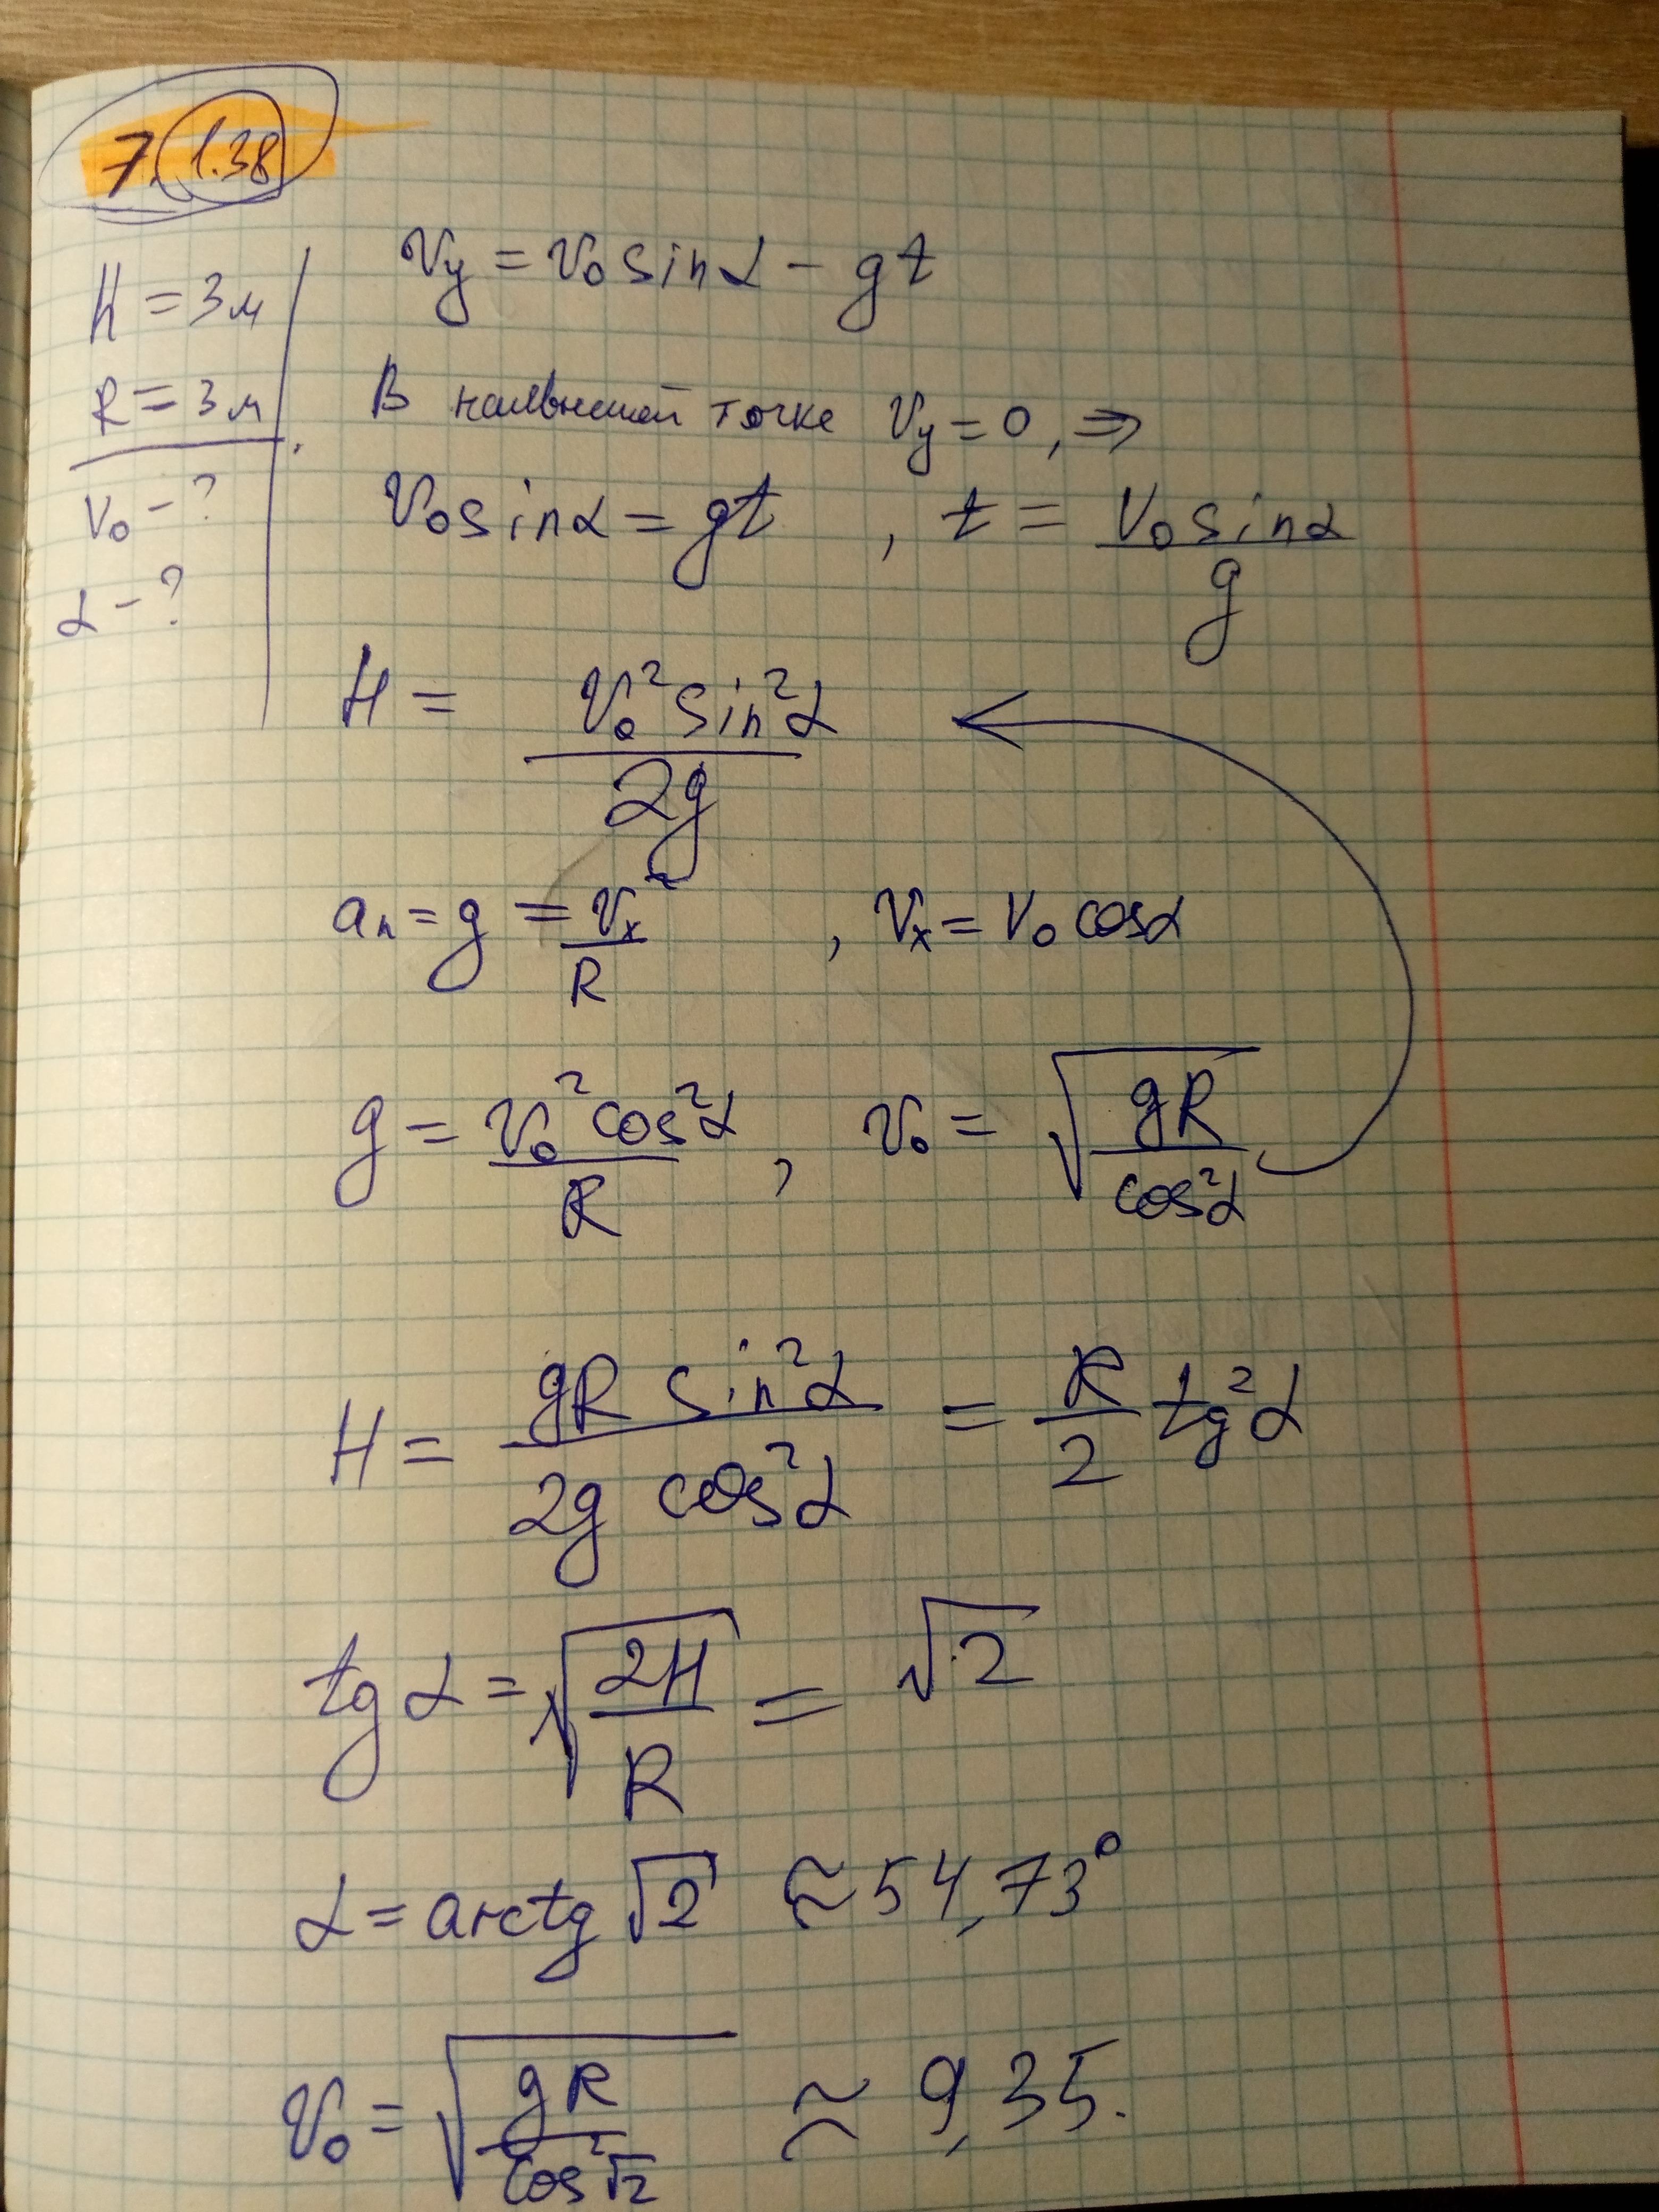 7. 1.38
H = 3 м
R = 3 м
V₀ - ?
α - ?
Vy = V₀ sinα - gt
В наивысшей точке Vy = 0, ⇒
V₀ sinα = gt , t = V₀ sinα / g
H = V₀² sin²α / 2g
aₙ = g = Vₓ² / R , Vₓ = V₀ cosα
g = V₀² cos²α / R , V₀ = √(gR / cos²α)
H = gR sin²α / 2g cos²α = R/2 tg²α
tg α = √(2H / R) = √2
α = arctg √2 ≈ 54,73°
V₀ = √(gR / cos²√2) ≈ 9,35.